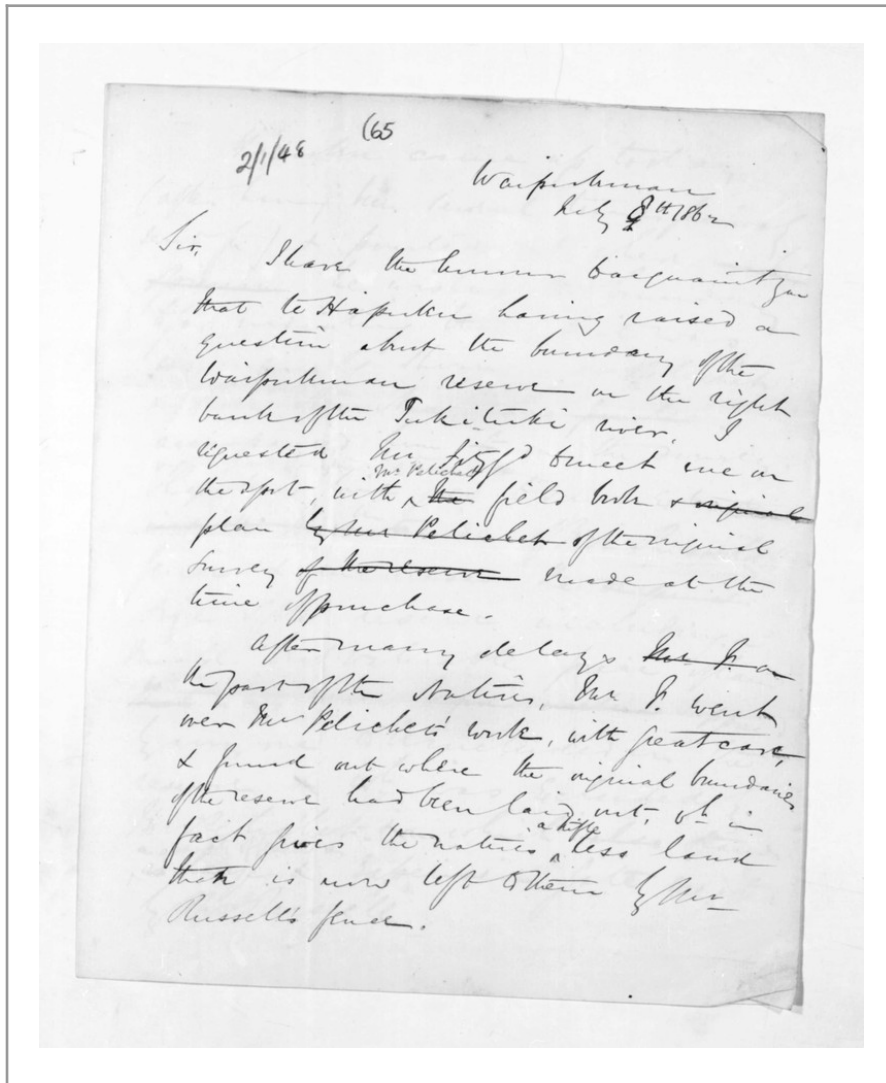 (65
2/1/48
Waipukurau
July 8th 1862
Sir,
I have the honour to acquaint you
that te Hapuku having raised a
question about the boundary of the
Waipukurau reserve on the right
bank of the Tukituki river, I
requested Mr to meet me on
Mr Pelichet's
the spot, with the field book & original
plan by Mr Pelichet of the original
survey of the reserve made at the
time of purchase.
After many delays Mr F. on
the part of the Natives, Mr F. went
over Mr Pelichet's work, with great care,
& found out where the original boundaries
of the reserve had been laid out, wh. in
a trifle
fact gives the natives less land
than is now left to them by Mr
Russell's fence.